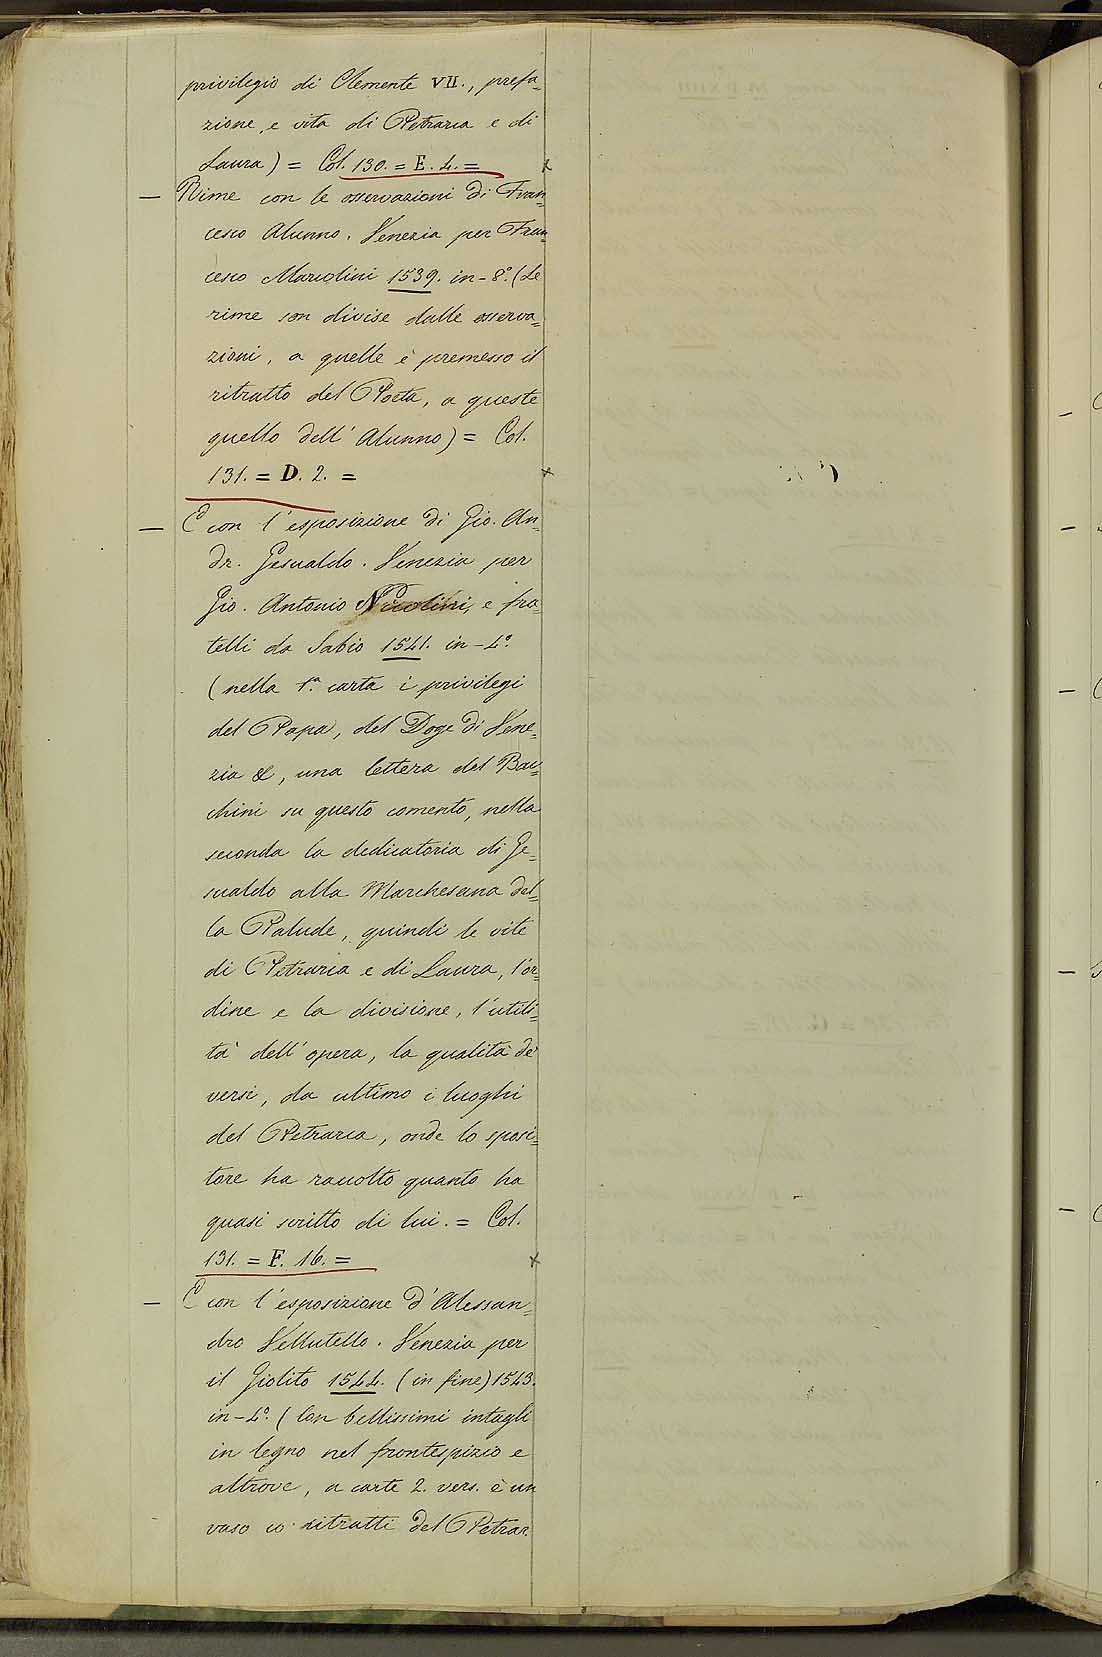 privilegio di Clemente VII., prefa=
zione, e vita di Petrarca e di
Laura) = Col. 130. = E. 4. = x
— Rime con le osservazioni di Fran=
cesco Alunno. Venezia per Fran=
cesco Marcolini 1539. in-8° (Le
rime son divise dalle osserva=
zioni, a quelle è premesso il
ritratto del Poeta, a queste
quello dell' Alunno) = Col.
131. = D. 2. = x
— E con l'esposizione di Gio. An=
dr. Gesualdo. Venezia per
Gio. Antonio Nicolini, e fra=
telli da Sabio 1541. in-4°.
(nella 1ª carta i privilegi
del Papa, del Doge di Vene=
zia &, una lettera del Bac=
chini su questo comento, nella
seconda la dedicatoria di Ge=
sualdo alla Marchesana del=
la Palude, quindi le vite
di Petrarca e di Laura, l'or=
dine e la divisione, l'utili=
tà dell' opera, la qualità de'
versi, da ultimo i luoghi
del Petrarca, onde lo sposi=
tore ha raccolto quanto ha
quasi scritto di lui. = Col.
131. = F. 16. = x
— E con l'esposizione d'Alessan=
dro Vellutello. Venezia per
il Giolito 1544. (in fine) 1543.
in-4°. (Con bellissimi intagli
in legno nel frontespizio e
altrove, a carte 2. vers. è un
vaso co' ritratti del Petrar.